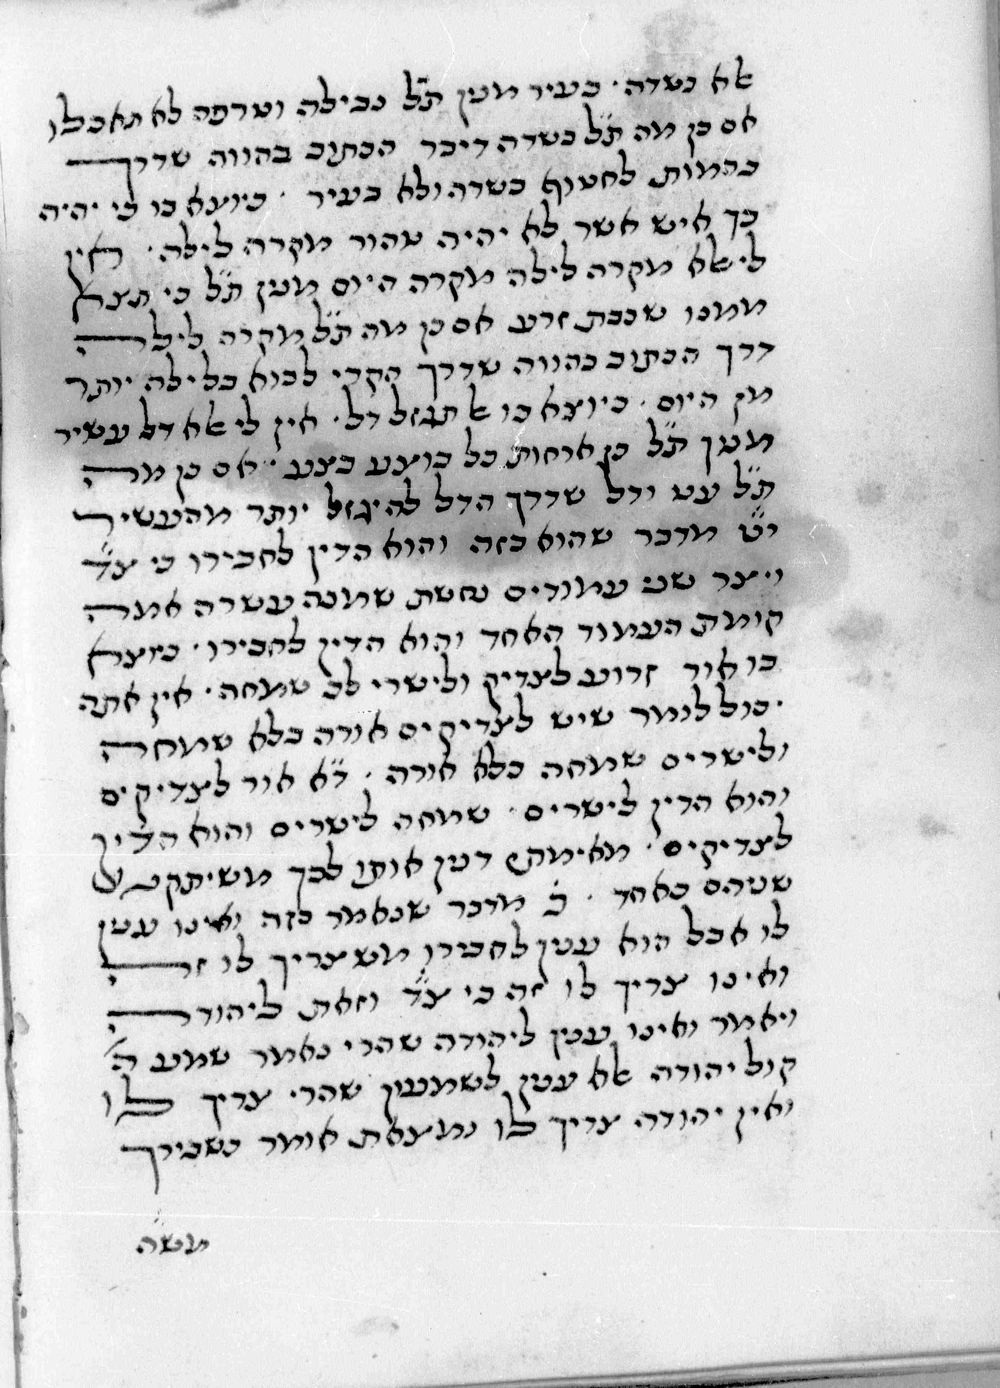 אלא בשדה · בעיר מנין ת״ל נבילה וטרפה לא תאכלו
אם כן מה ת״ל בשדה דיבר הכתוב בהווה שדרך
בהמות לחטוף בשדה ולא בעיר · כיוצא בו כי יהיה
בך איש אשר לא יהיה טהור מקרה לילה · אין
לי אלא מקרה לילה מקרה היום מנין ת״ל כי תצא
ממנו שכבת זרע אם כן מה ת״ל מקרה לילה
דרך הכתוב בהווה שדרך הקרי לבוא בלילה יותר
מן היום · כיוצא בו אל תגזל דל · אין לי אלא דל עשיר
מנין ת״ל כן ארחות כל בוצע בצע · אם כן מה
ת״ל עני ודל שדרך הדל להיגזל יותר מהעשיר
י״ט מדבר שהוא בזה והוא הדין לחבירו כי צד
ויצר שני עמודים נחשת שמנה עשרה אמה
קומת העמוד האחד והוא הדין לחבירו · כיוצא
בו אור זרוע לצדיק ולישרי לב שמחה · אין אתה
יכול לומר שיש לצדיקים אורה בלא שמחה
ולישרים שמחה בלא אורה · אלא אור לצדיקים
והוא הדין לישרים · שמחה לישרים והוא הדין
לצדיקים · מאימתי דנין אותו לכך משיתקע
שניהם כאחד · כ׳ מדבר שנאמר בזה ואינו ענין
לו אבל הוא ענין לחבירו משצריך לו זה
ואינו צריך לו זה כי צד וזאת ליהודה
ויאמר ואינו ענין ליהודה שהרי נאמר שמע ה׳
קול יהודה אלא ענין לשמעון שהרי צריך לו
ואין יהודה צריך לו נמצאת אומר כשבירך
משה